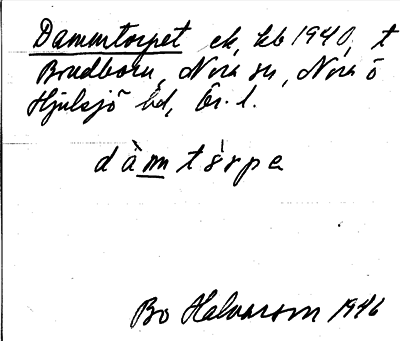 Dammtorpet ek, kb 1940, t
Bredborn, Nora sn, Nora o
Hjulsjö bd, Ör. l.
dàmtårpe
Bo Halvarson 1946